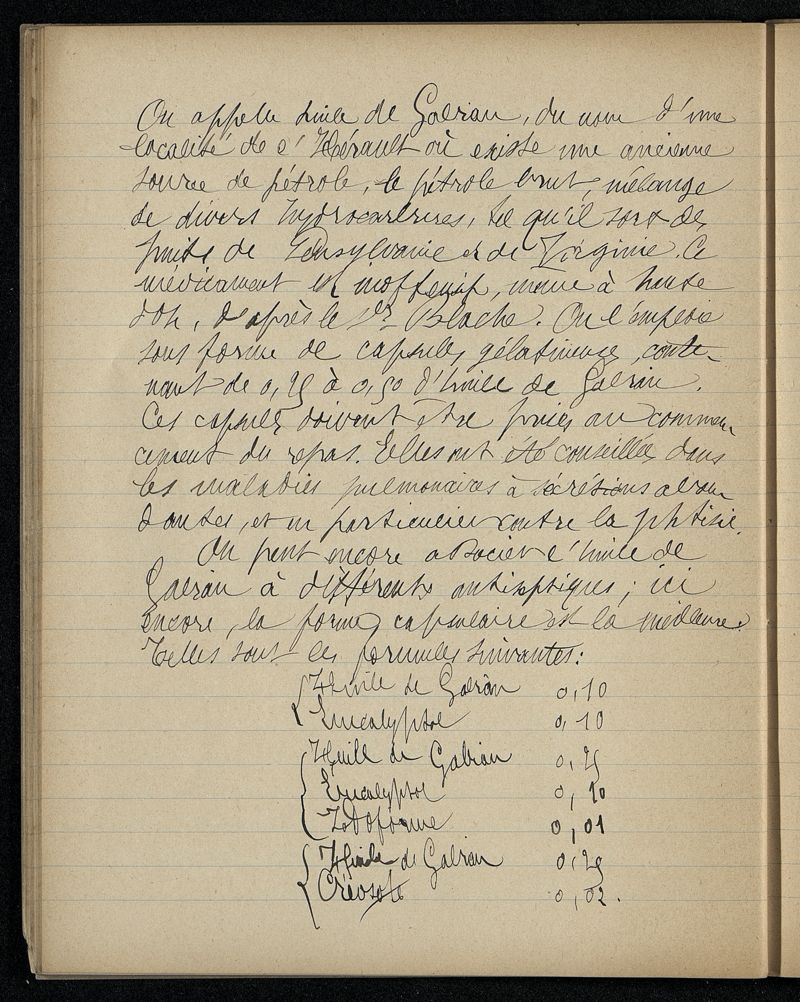 On appelle huile de Gabian, du nom d'une
localité de l'Hérault où existe une ancienne
source de pétrole, le pétrole brut, mélange
de divers hydrocarbures, tel qu'il sort des
puits de Pensylvanie et de Virginie. Ce
médicament est inoffensif, même à haute
dose, d'après le Dr Blache. On l'emploie
sous forme de capsules gélatineuses conte-
nant de 0,25 à 0,50 d'huile de Gabian.
Ces capsules doivent être prises au commen-
cement du repas. Elles ont été conseillées dans
les maladies pulmonaires à sécrétions abon-
dantes, et en particulier contre la phtisie.
On peut encore associer l'huile de
Gabian à différents antiseptiques; ici
encore, la forme capsulaire est la meilleure.
Telles sont les formules suivantes:
Huile de Gabian 0,10
Eucalyptol 0,10
Huile de Gabian 0,25
Eucalyptol 0,10
Iodoforme 0,01
Huile de Gabian 0,25
Créosote 0,02.